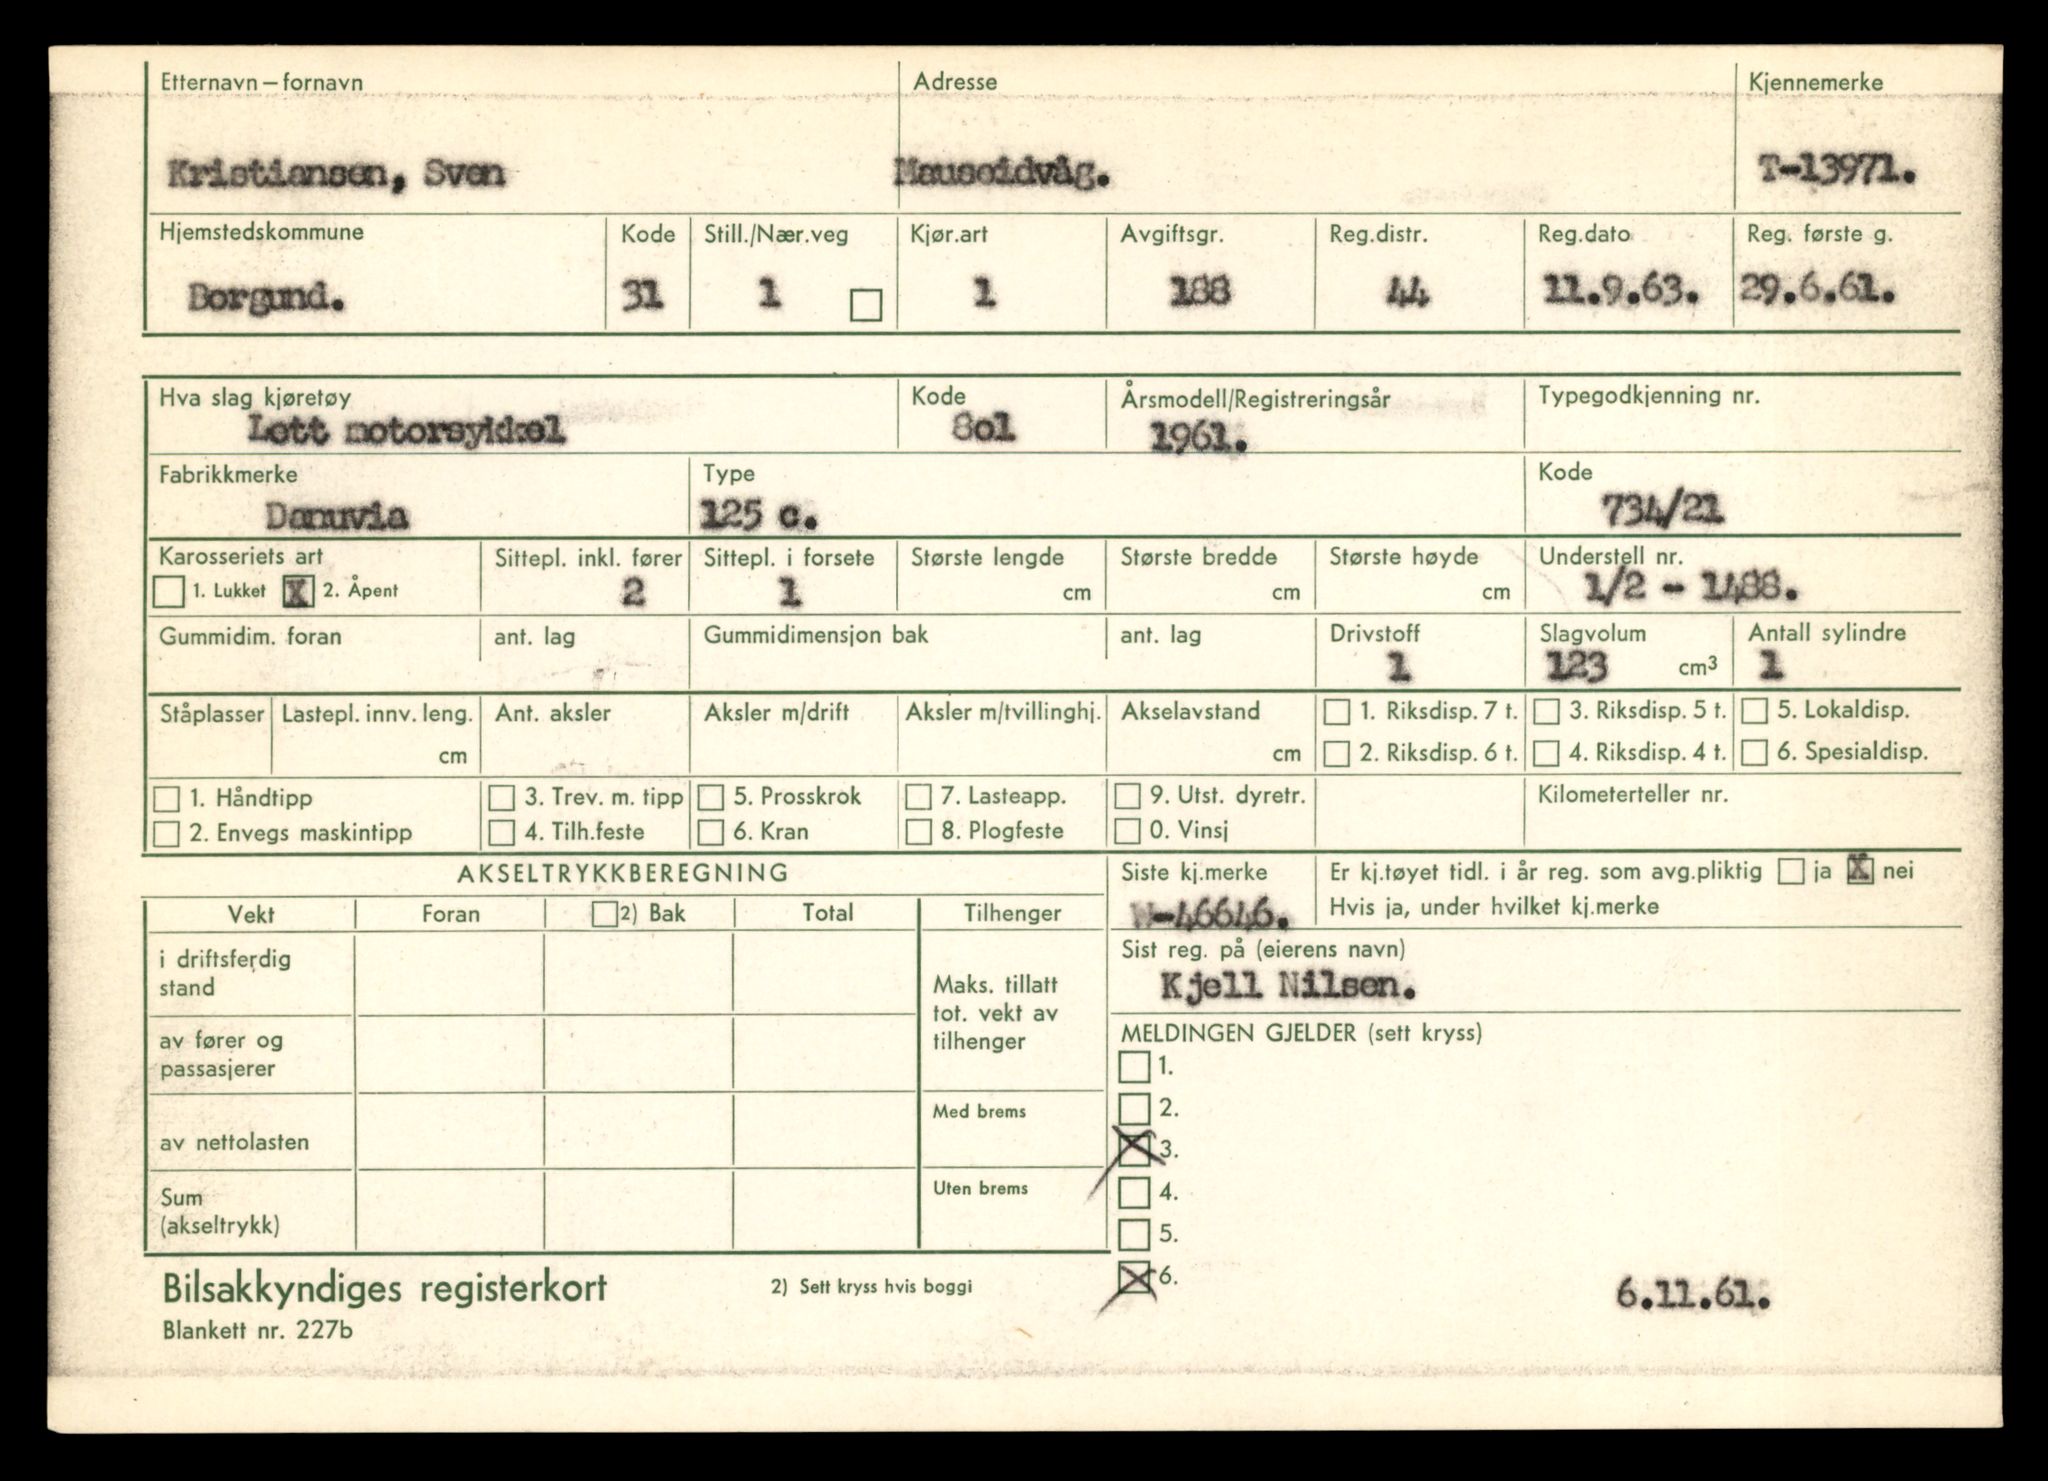 Etternavn – fornavn Adresse Kjennemerke
Kristiansen, Sven Mauseidvåg. T-13971.
Hjemstedskommune Kode Still./Nær.veg Kjør.art Avgiftsgr. Reg.distr. Reg.dato Reg. første g.
Borgund. 31 1 1 188 44 11.9.63. 29.6.61.
Hva slag kjøretøy Kode Årsmodell/Registreringsår Typegodkjenning nr.
Lett motorsykkel 8o1 1961.
Fabrikkmerke Type Kode
Danuvia 125 c. 734/21
Karosseriets art Sittepl. inkl. fører Sittepl. i forsete Største lengde Største bredde Største høyde Understell nr.
1. Lukket X 2. Åpent 2 1 cm cm cm 1/2 - 1488.
Gummidim. foran ant. lag Gummidimensjon bak ant. lag Drivstoff Slagvolum Antall sylindre
1 123 cm³ 1
Ståplasser Lastepl. innv. leng. Ant. aksler Aksler m/drift Aksler m/tvillinghj. Akselavstand 1. Riksdisp. 7 t. 3. Riksdisp. 5 t. 5. Lokaldisp.
cm cm 2. Riksdisp. 6 t. 4. Riksdisp. 4 t. 6. Spesialdisp.
1. Håndtipp 3. Trev. m. tipp 5. Prosskrok 7. Lasteapp. 9. Utst. dyretr. Kilometerteller nr.
2. Envegs maskintipp 4. Tilh.feste 6. Kran 8. Plogfeste 0. Vinsj
AKSELTRYKKBEREGNING Siste kj.merke Er kj.tøyet tidl. i år reg. som avg.pliktig ja X nei
Vekt Foran 2) Bak Total Tilhenger W-46646. Hvis ja, under hvilket kj.merke
i driftsferdig Sist reg. på (eierens navn)
stand Maks. tillatt Kjell Nilsen.
tot. vekt av
av fører og tilhenger MELDINGEN GJELDER (sett kryss)
passasjerer 1.
Med brems 2.
av nettolasten X 3.
Uten brems 4.
Sum
(akseltrykk) 5.
Bilsakkyndiges registerkort 2) Sett kryss hvis boggi X 6. 6.11.61.
Blankett nr. 227b